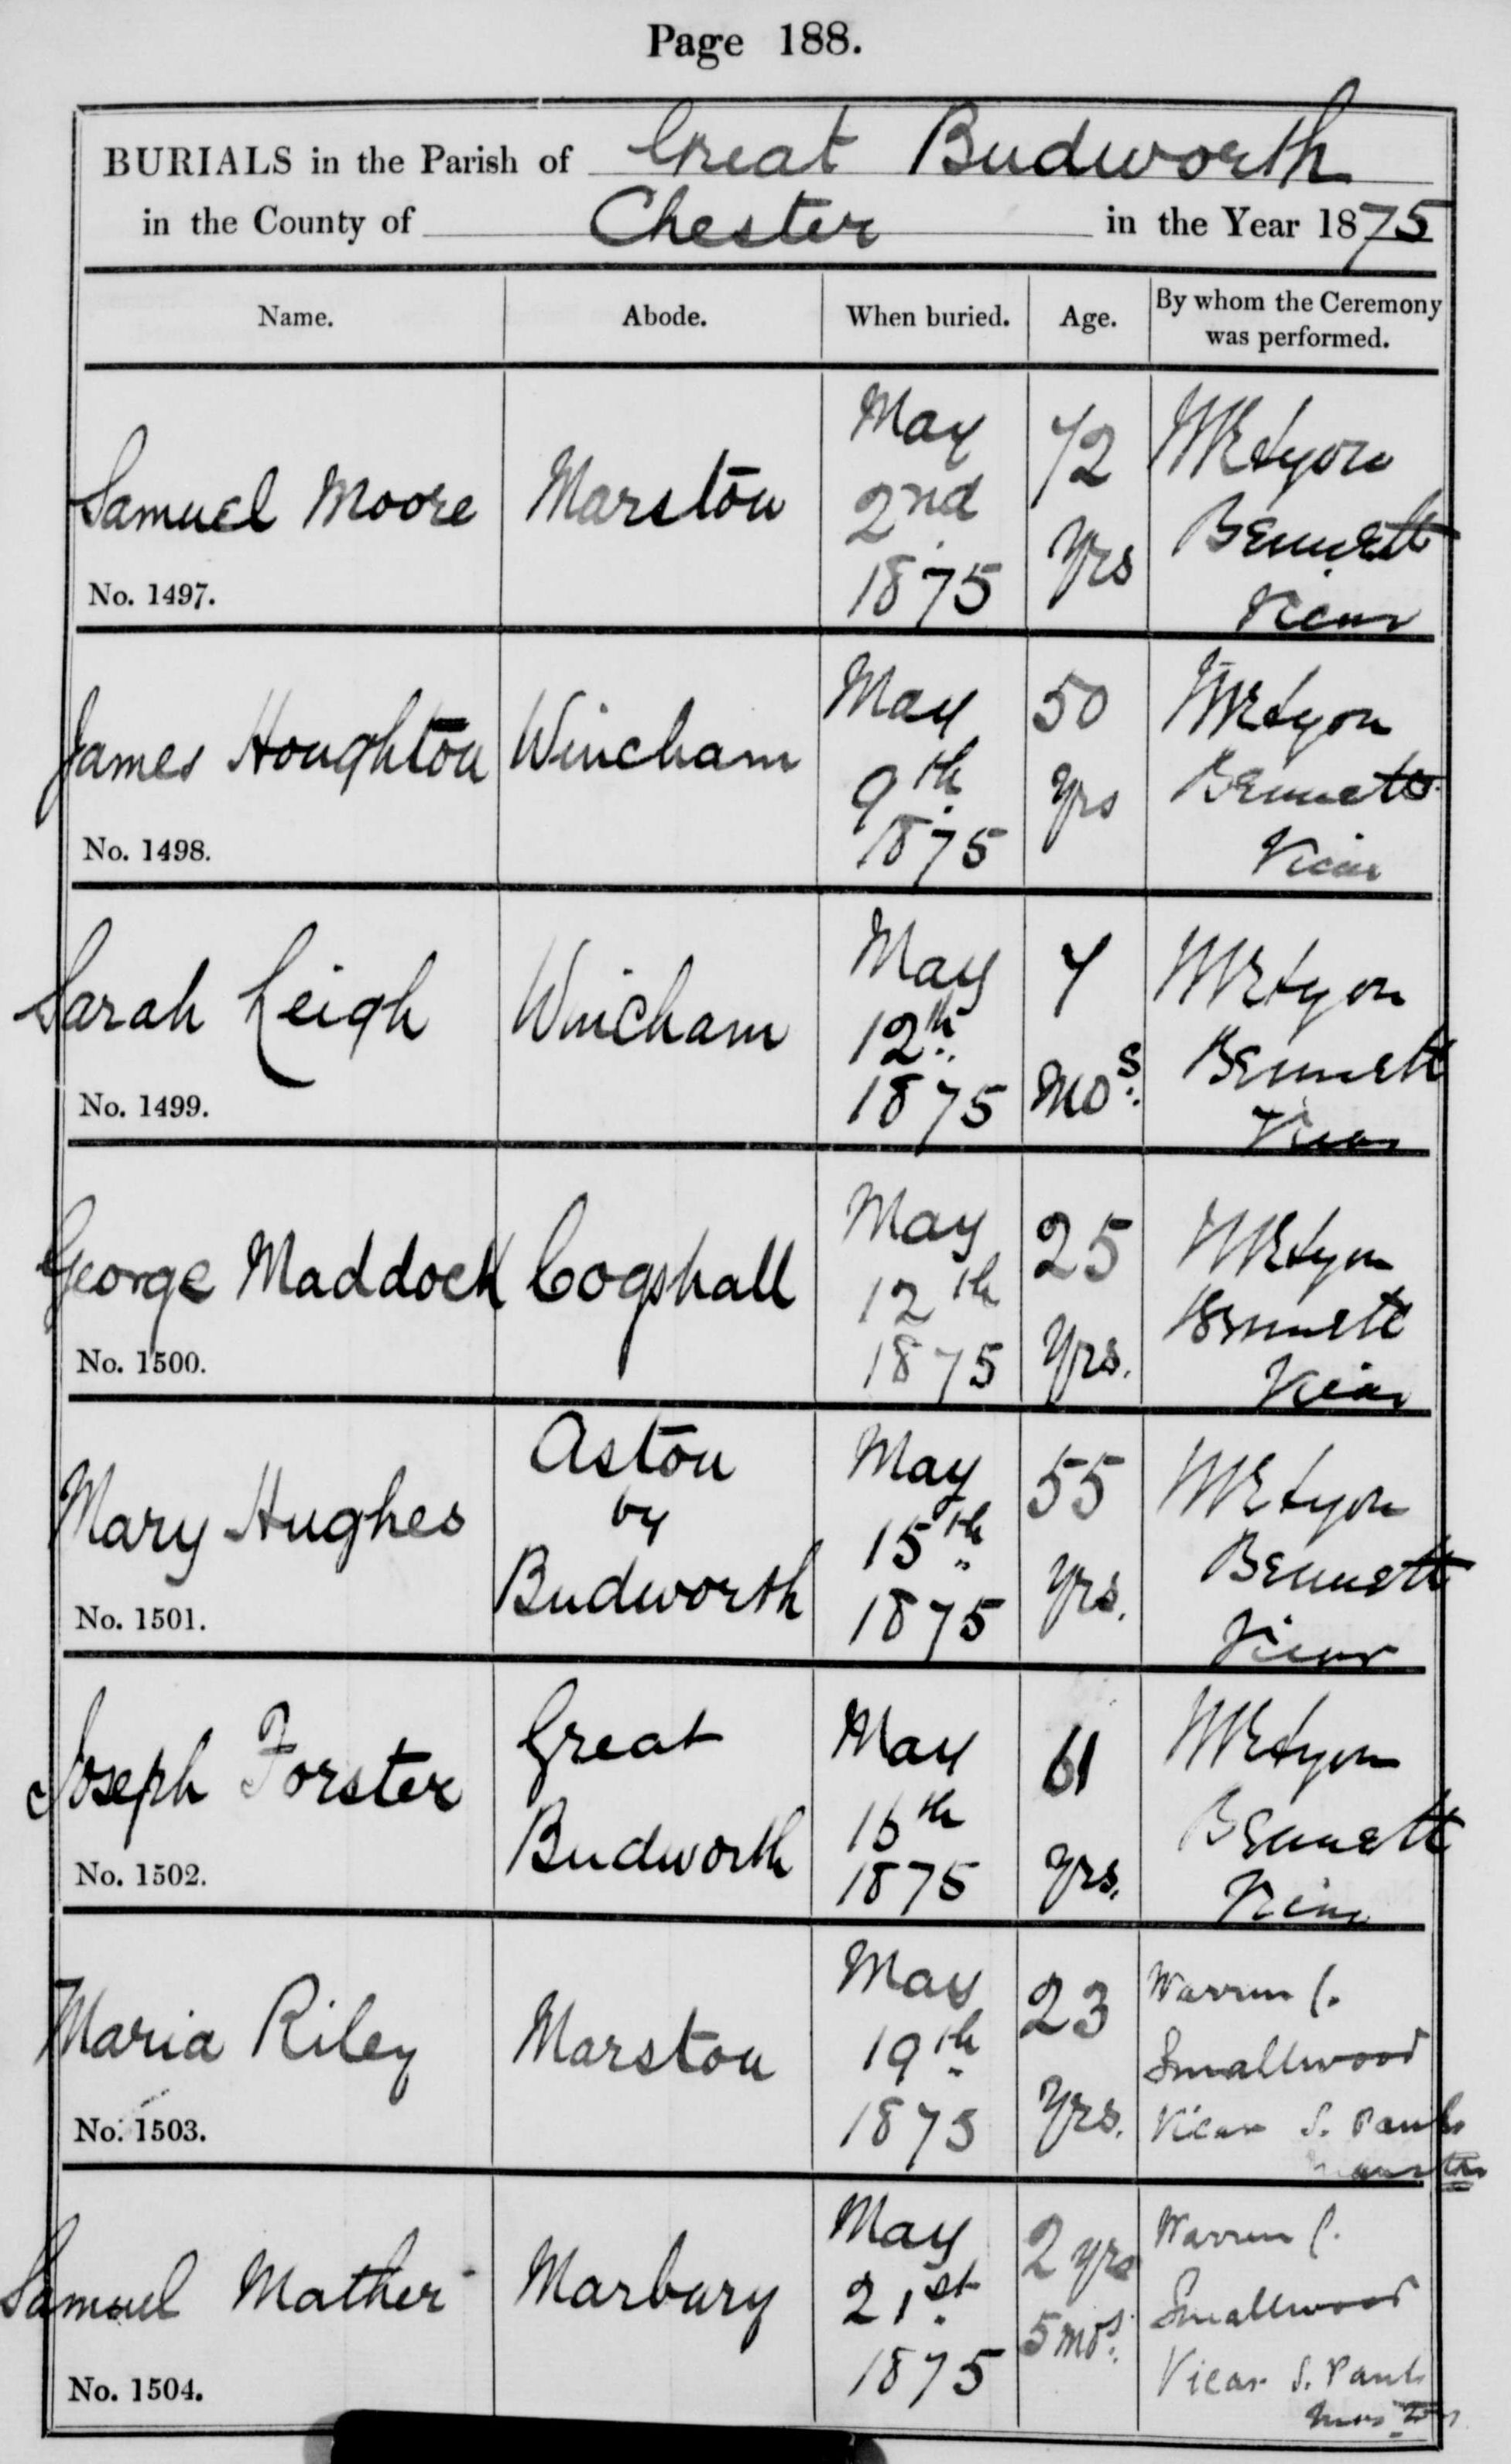 Page 188.
BURIALS in the Parish of Great Budworth
in the County of Chester in the Year 1875
Name. Abode. When buried. Age. By whom the Ceremony was performed.
Samuel Moore
No. 1497.
Marston
May
2nd
1875
72
Yrs
W E Lyon
Bennett
Vicar
James Houghton
No. 1498.
Wincham
May
9th
1875
50
Yrs
W E Lyon
Bennett
Vicar
Sarah Leigh
No. 1499.
Wincham
May
12th
1875
7
Mos.
W E Lyon
Bennett
Vicar
George Maddock
No. 1500.
Cogshall
May
12th
1875
25
Yrs.
W E Lyon
Bennett
Vicar
Mary Hughes
No. 1501.
Aston
by
Budworth
May
15th
1875
55
Yrs.
W E Lyon
Bennett
Vicar
Joseph Forster
No. 1502.
Great
Budworth
May
16th
1875
61
Yrs.
W E Lyon
Bennett
Vicar
Maria Riley
No. 1503.
Marston
May
19th
1875
23
Yrs.
Warren C.
Smallwood
Vicar S. Pauls
Marston
Samuel Mather
No. 1504.
Marbury
May
21st
1875
2 yrs
5 mos.
Warren C.
Smallwood
Vicar S. Pauls
Marston